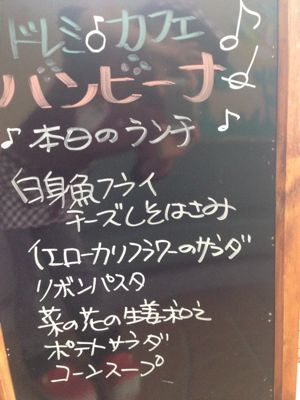 ドレミ♪カフェ
バンビーナ
♪本日のランチ
白身魚フライ
チーズしそはさみ
イエローカリフラワーのサラダ
リボンパスタ
菜の花の生姜和え
ポテトサラダ
コーンスープ